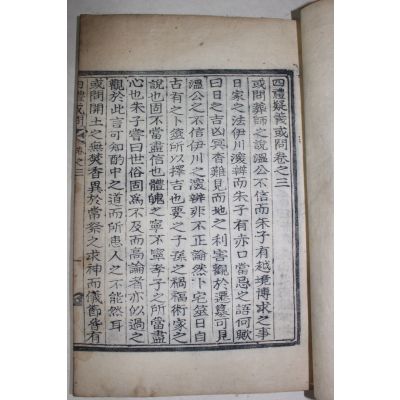 四禮疑義或問卷之三
或問葬師之說溫公不信而朱子有越境博求之事
日家之法伊川深辨而朱子有赤口當忌之語何歟
曰日之吉凶興喪難見而地之利害觀於遷墓可見
溫公之不信伊川之深辨非不正論然卜宅筮日自
古有之卜筮所以擇吉也要之子孫之禍福術家之
說也固不當盡信也體魄之寧不寧孝子之所當盡
心也朱子嘗曰世俗固爲不及而高論者亦似過之
觀於此言可知酌中之道而所患人之不能然耳
或問開土之無焚香異於常祭之求神而儀節皆有
四禮或問 卷之三